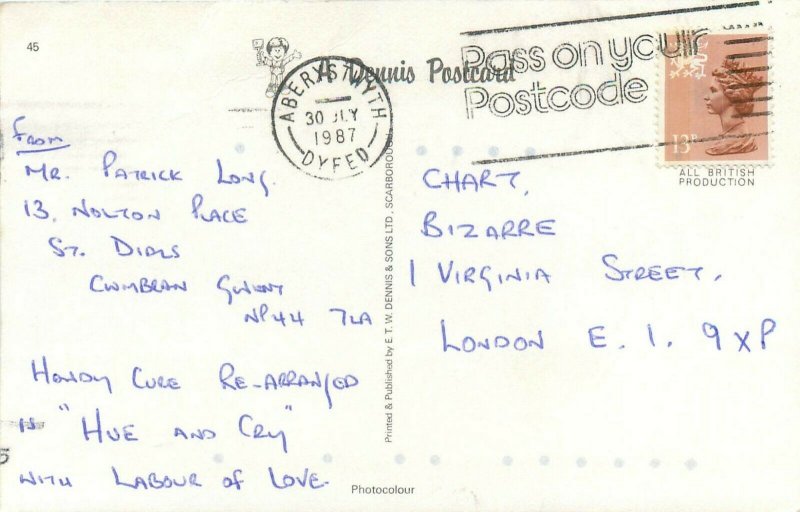 45
A Dennis Postcard
ABERYSTWYTH
30 JLY
1987
DYFED
Pass on your
Postcode
13P
ALL BRITISH
PRODUCTION
From
Mr. Patrick Long
13, Nolton Place
St. Dials
Cwmbran Gwent
NP44 7LA
Howdy Cure Re-arranged
is "Hue and Cry"
with Labour of Love.
Printed & Published by E. T. W. DENNIS & SONS LTD., SCARBOROUGH
Chart,
Bizarre
1 Virginia Street,
London E. 1. 9XP
Photocolour